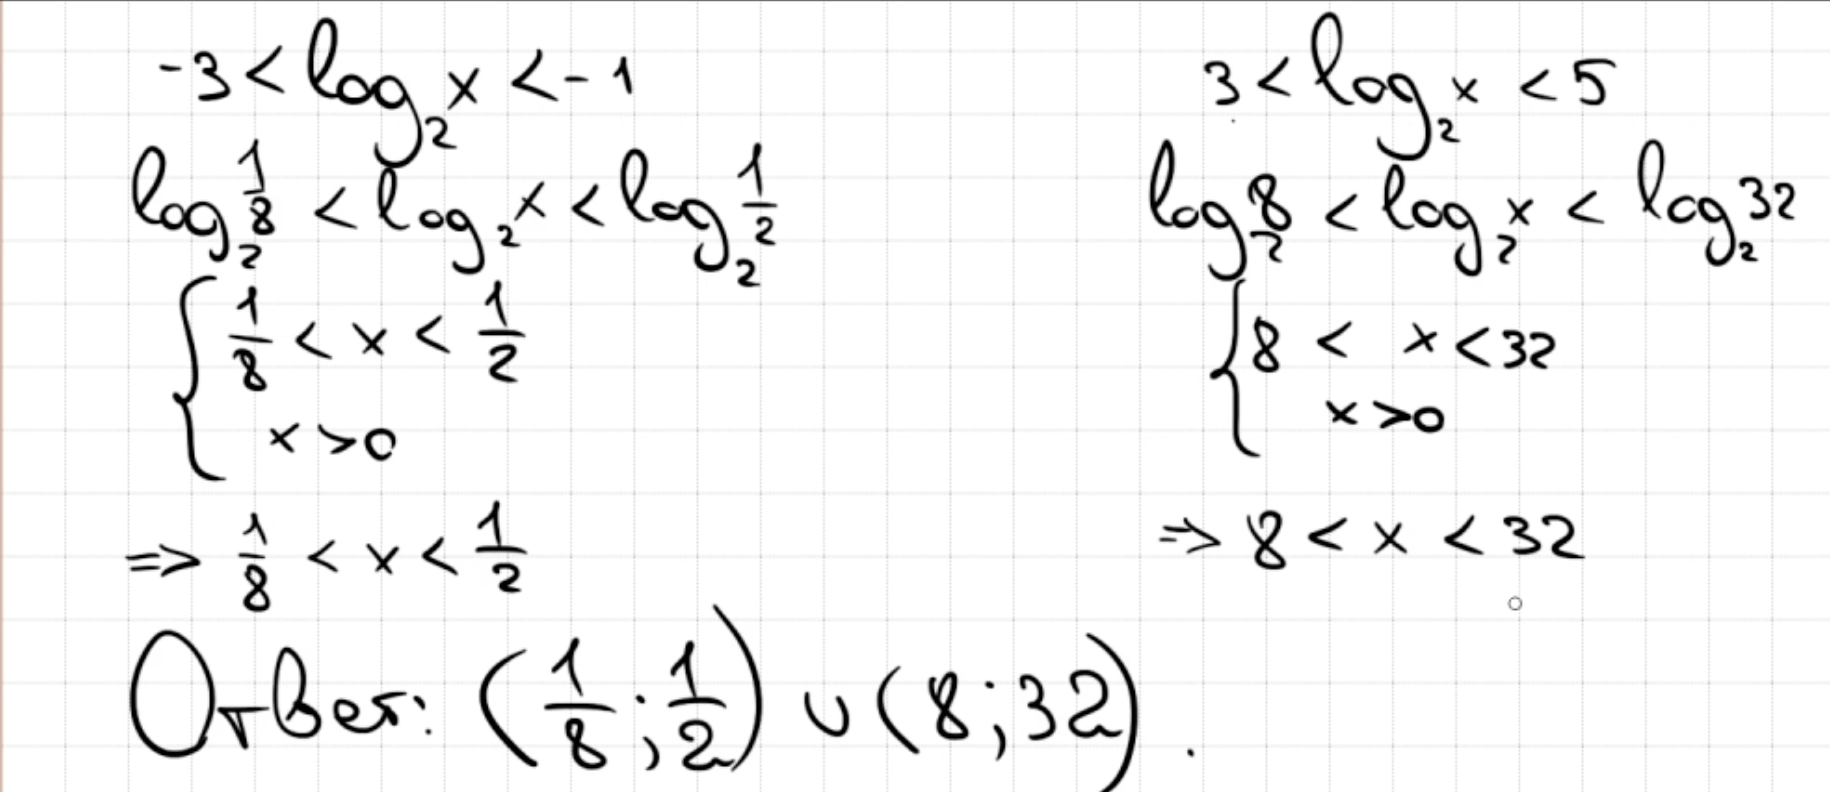 -3 < log₂ x < -1
log₂ 1/8 < log₂ x < log₂ 1/2
{ 1/8 < x < 1/2
x > 0
⇒ 1/8 < x < 1/2
3 < log₂ x < 5
log₂ 8 < log₂ x < log₂ 32
{ 8 < x < 32
x > 0
⇒ 8 < x < 32
Ответ: (1/8; 1/2) ∪ (8; 32).